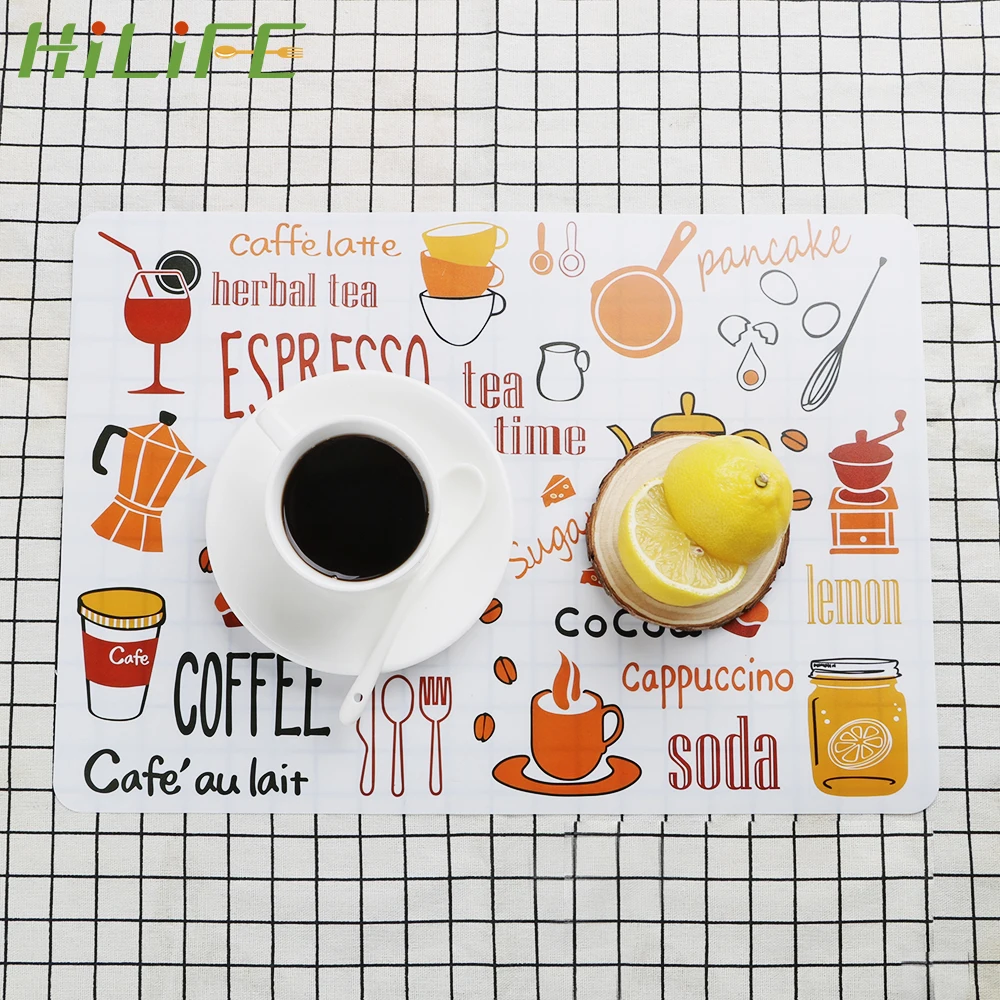 HiLiFE
caffè latte
herbal tea
pancake
ESPRESSO
tea
time
Suga
lemon
CoCoa
Cafe
COFFEE
Cappuccino
soda
Café au lait